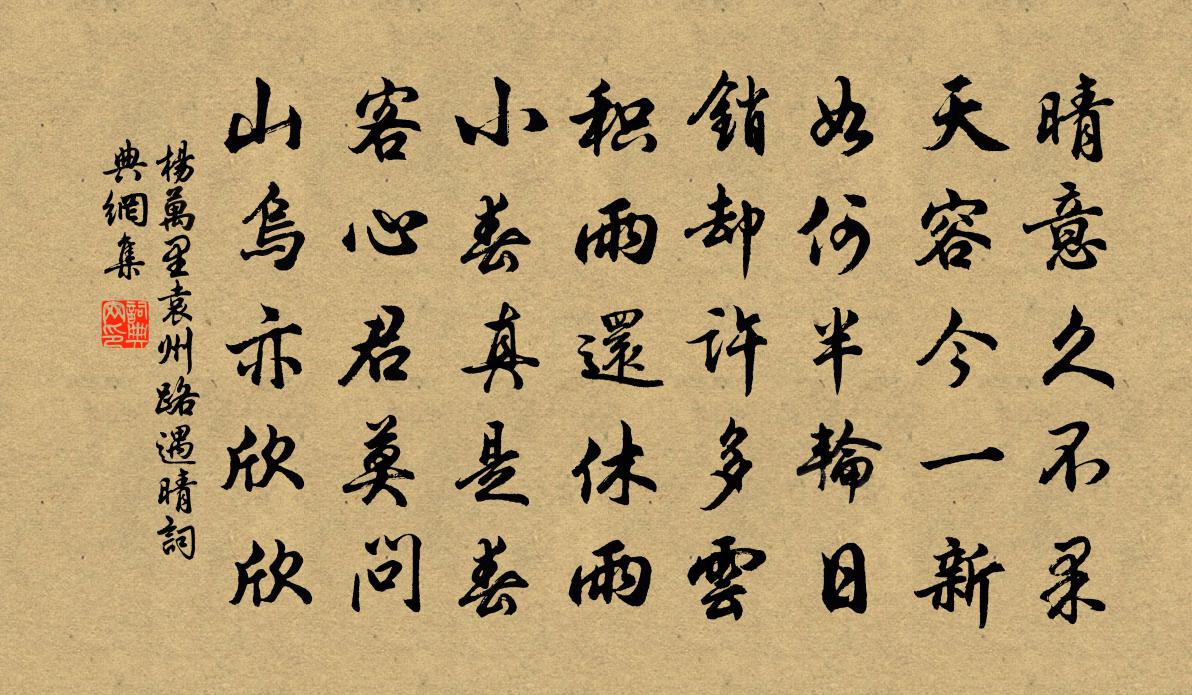 晴意久不果
天容今一新
如何半輪日
銷却許多雲
积雨還休雨
小春真是春
客心君莫問
山烏亦欣欣
楊萬里袁州路遇晴詞
典網集
詞典
网印